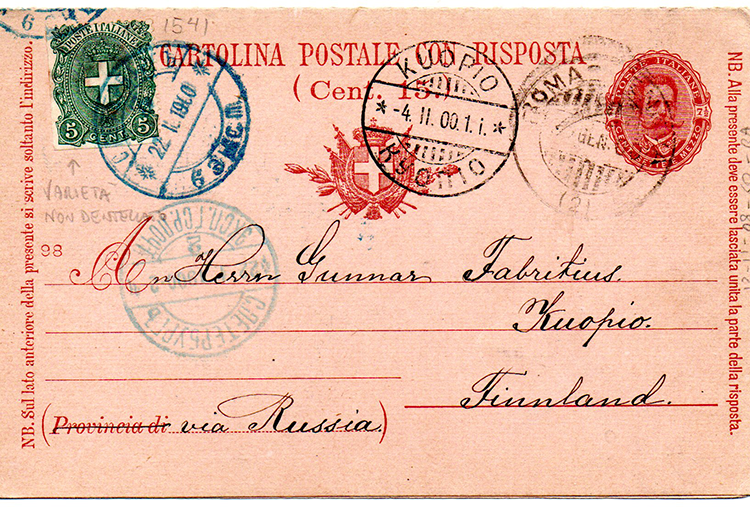 1541
POSTE ITALIANE
5 CENT. 5
CARTOLINA POSTALE CON RISPOSTA
(Cent. 15)
22. I. 1900
KUOPIO
-4. II. 00. 1. i.
КУОПІО
ROMA
(2)
POSTE ITALIANE
VARIETA
NON DENTELLATO
98
С.ПЕТЕРБУРГЪ
An Herrn Gunnar Fabritius.
Kuopio.
Finnland.
(Provincia di via Russia.)
NB. Sul lato anteriore della presente si scrive soltanto l'indirizzo.
NB. Alla presente deve essere lasciata unita la parte della risposta.